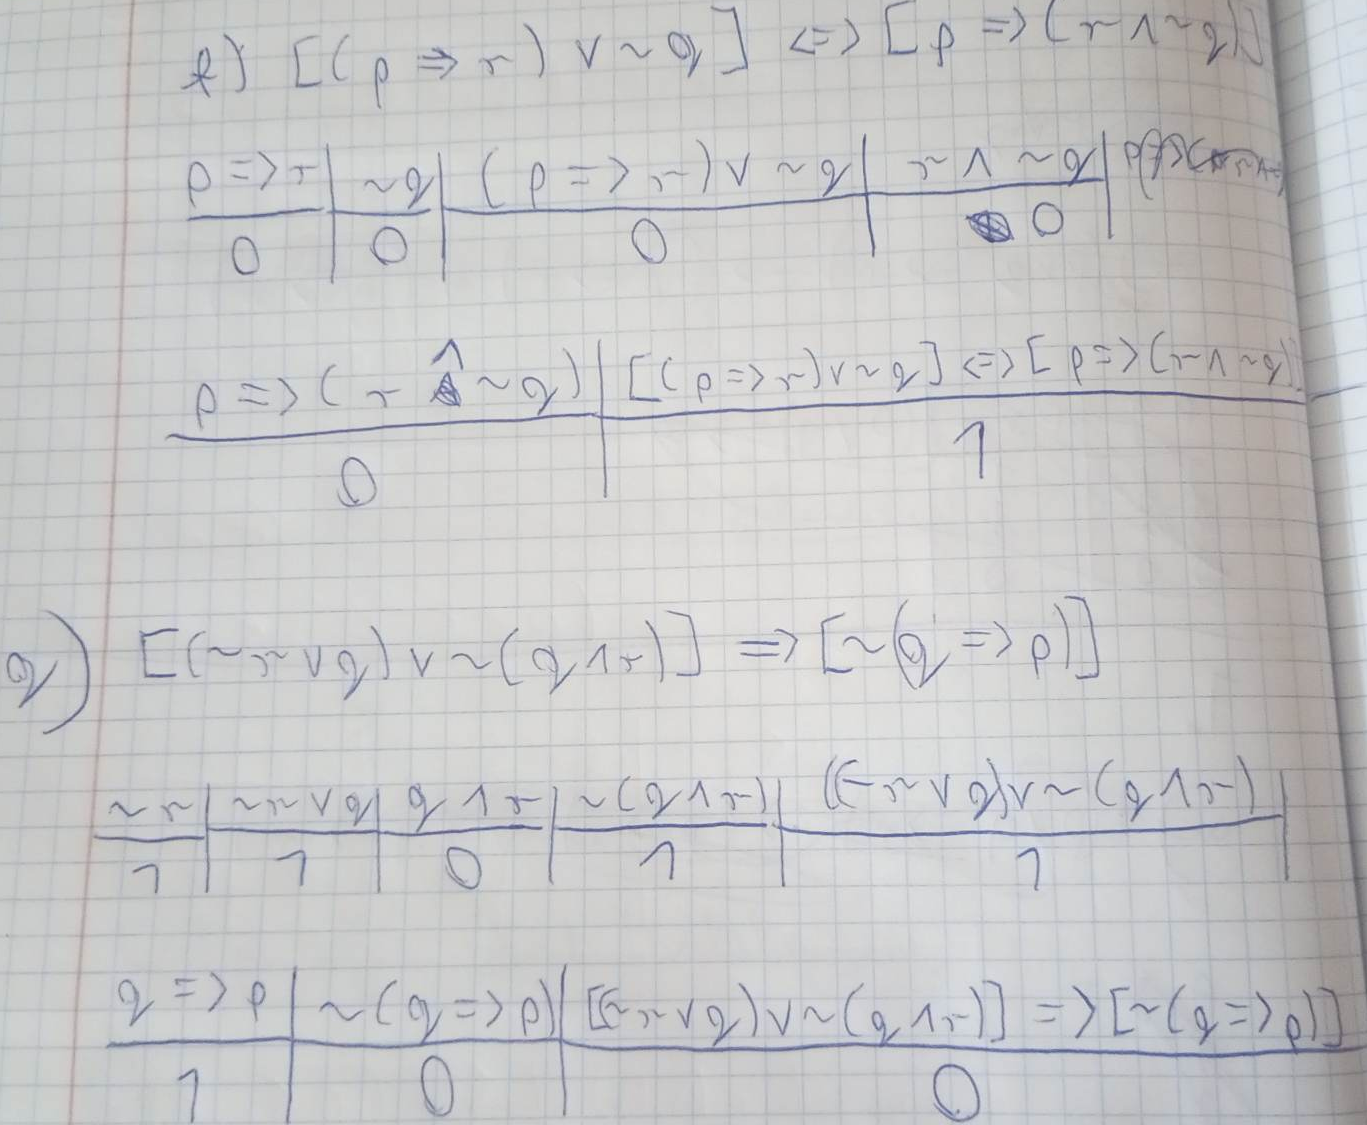 f) [(p => r) ∨ ~q] <=> [p => (r ∧ ~q)]
p => r | ~q | (p => r) ∨ ~q | r ∧ ~q |
0 | 0 | 0 | 0 |
p => (r ∧ ~q) | [(p => r) ∨ ~q] <=> [p => (r ∧ ~q)]
0 | 1
g) [(~r ∨ q) ∨ ~(q ∧ r)] => [~(q => p)]
~r | ~r ∨ q | q ∧ r | ~(q ∧ r) | (~r ∨ q) ∨ ~(q ∧ r) |
1 | 1 | 0 | 1 | 1 |
q => p | ~(q => p) | [(~r ∨ q) ∨ ~(q ∧ r)] => [~(q => p)]
1 | 0 | 0